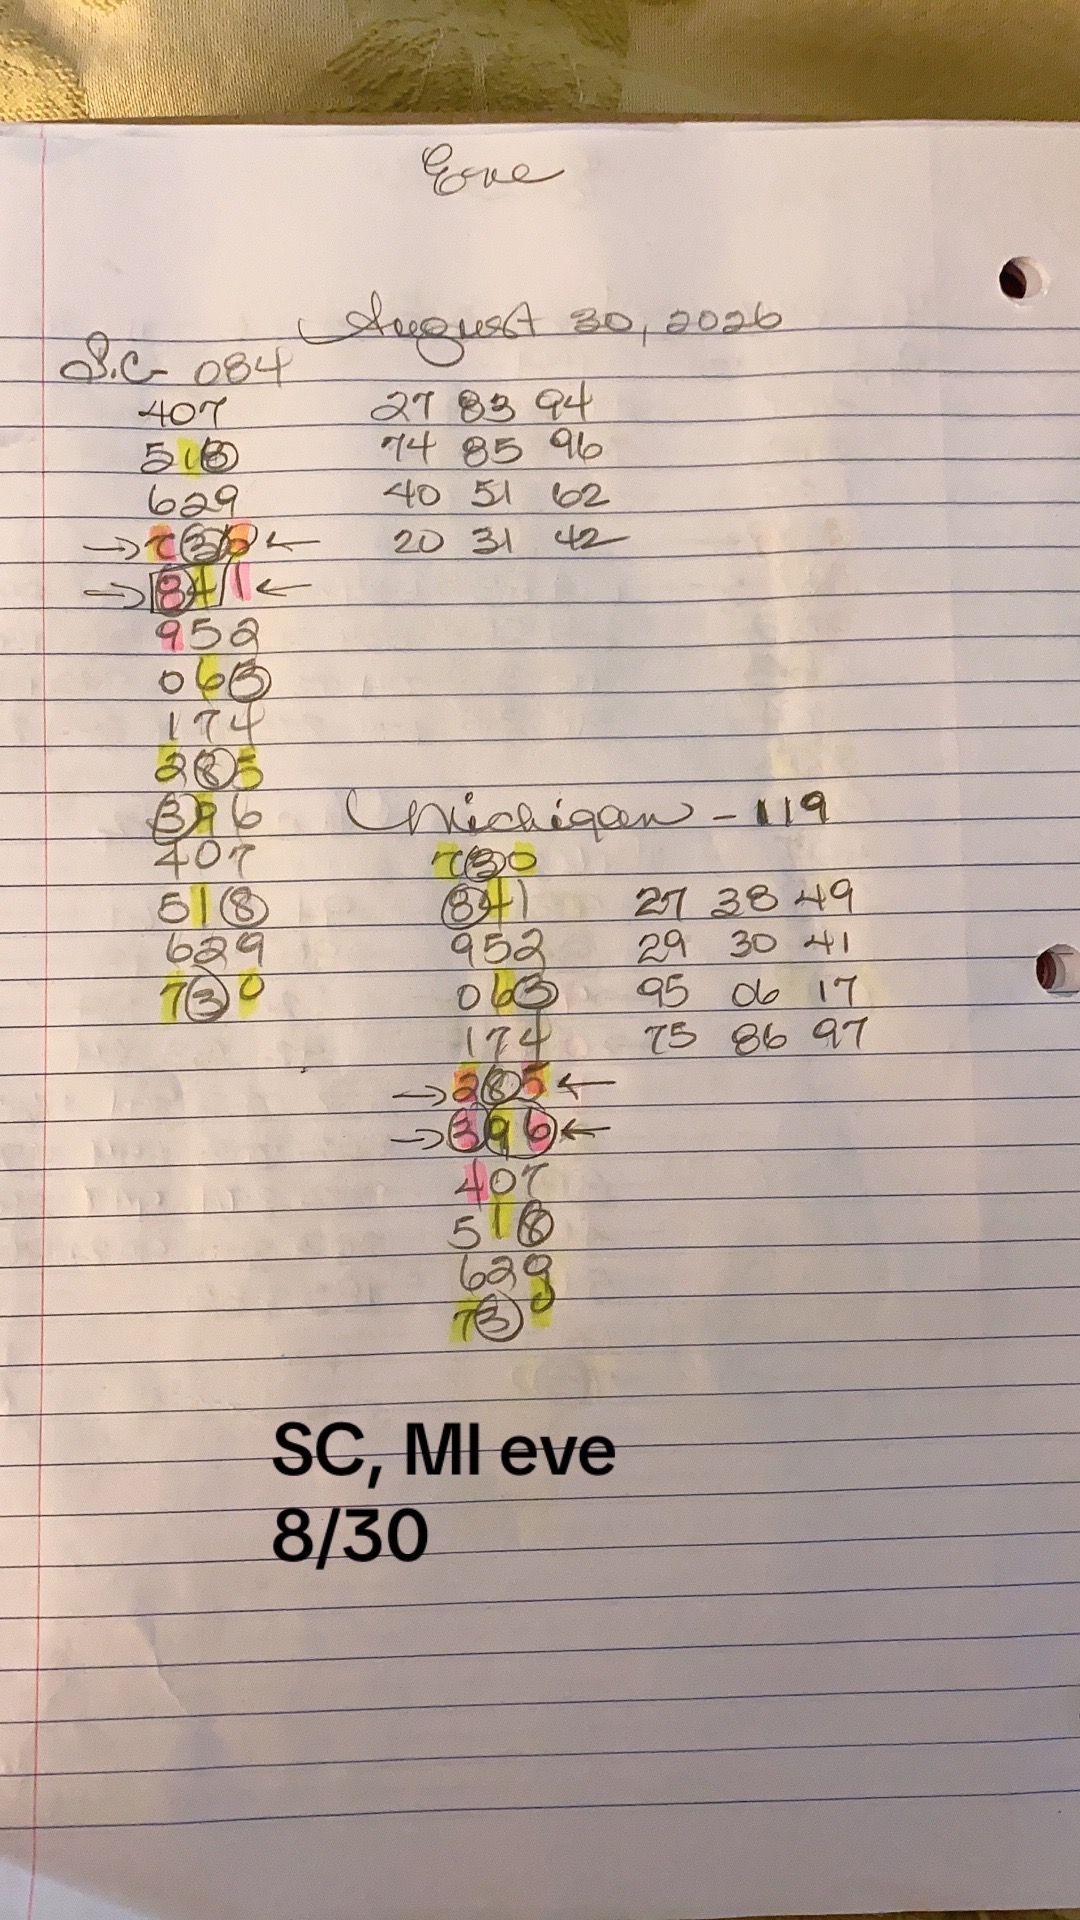 Eve
August 30, 2026
S.C- 084
407 27 83 94
518 74 85 96
629 40 51 62
→730← 20 31 42
→841←
952
063
174
285
396
407
518
629
730
Michigan - 119
730
841 27 38 49
952 29 30 41
063 95 06 17
174 75 86 97
→285←
→396←
407
518
629
730
SC, MI eve
8/30